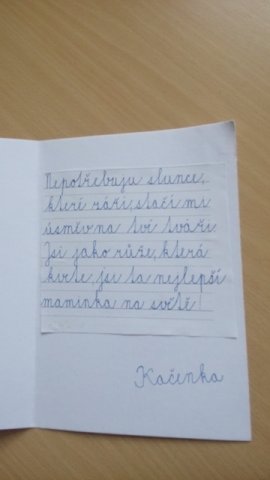 Nepotřebuju slunce,
které září, stačí mi
úsměv na tvé tváři.
Jsi jako růže, která
kvete, jsi ta nejlepší
maminka na světě!
Kačenka